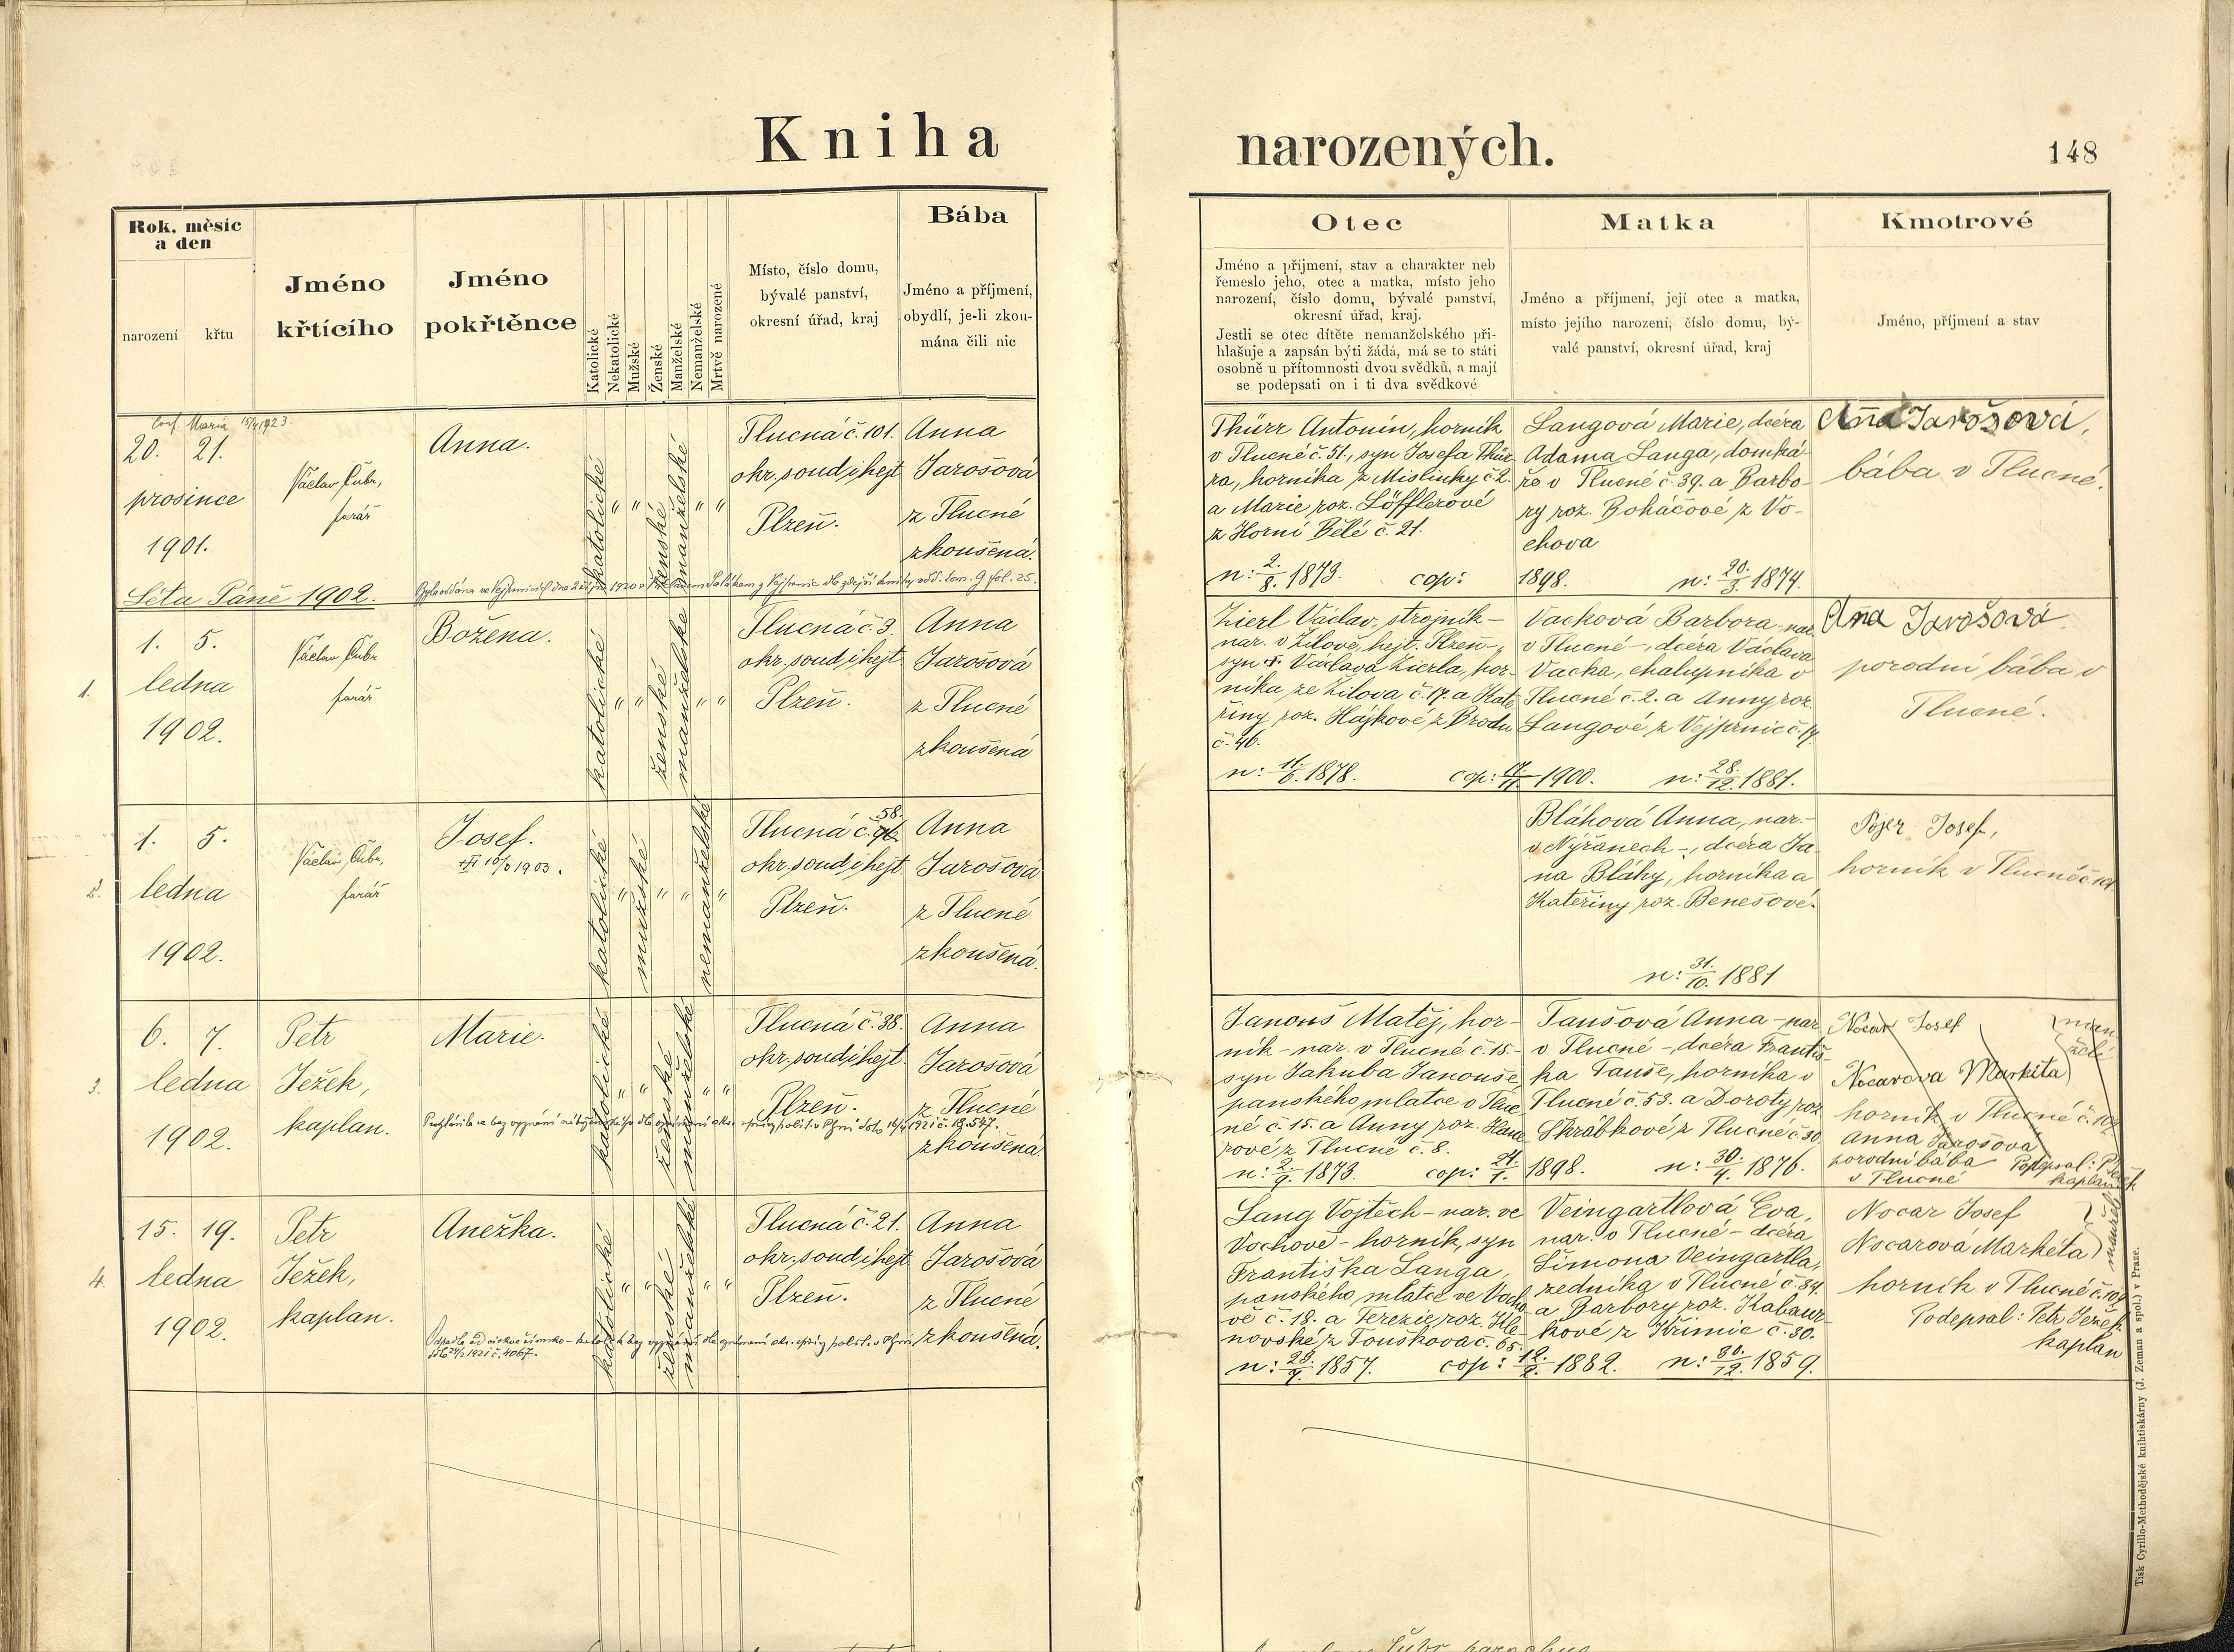 Kniha narozených.
148
Rok, měsíc
a den
narození
křtu
Jméno
křtícího
Jméno
pokřtěnce
Katolické
Nekatolické
Mužské
Ženské
Manželské
Nemanželské
Mrtvě narozené
Místo, číslo domu,
bývalé panství,
okresní úřad, kraj
Bába
Jméno a příjmení,
obydlí, je-li zkou-
mána čili nic
Otec
Jméno a příjmení, stav a charakter neb
řemeslo jeho, otec a matka, místo jeho
narození, číslo domu, bývalé panství,
okresní úřad, kraj.
Jestli se otec dítěte nemanželského při-
hlašuje a zapsán býti žádá, má se to státi
osobně u přítomnosti dvou svědků, a mají
se podepsati on i ti dva svědkové
Matka
Jméno a příjmení, její otec a matka,
místo jejího narození, číslo domu, bý-
valé panství, okresní úřad, kraj
Kmotrové
Jméno, příjmení a stav
Conf. Maria 15/4 1923.
20. 21.
prosince
1901.
Václav Čubr,
farář
Anna.
katolické
" "
ženské
manželské
" "
Tlucná č. 101.
okr. soud i hejt.
Plzeň.
Anna
Jarošová
z Tlucné
zkoušená.
Thürr Antonín, horník
v Tlucné č. 51., syn Josefa Thür
ra, horníka z Mislinky č. 2.
a Marie roz. Löfflerové
z Horní Bělé č. 21.
n: 2./8. 1873. cop: 1898.
Langová Marie, dcera
Adama Langa, domká-
ře v Tlucné č. 39. a Barbo-
ry roz. Boháčové z Vo-
chova
n: 20./3. 1874.
Anna Jarošová,
bába v Tlucné.
Léta Páně 1902.
1.
1. 5.
ledna
1902.
Václav Čubr
farář
Božena.
katolické
" "
ženské
manželské
" "
Tlucná č. 3.
okr. soud i hejt.
Plzeň.
Anna
Jarošová
z Tlucné
zkoušená
Zierl Václav, strojník -
nar. v Žilově, hejt. Plzeň -,
syn † Václava Zierla, hor-
níka ze Žilova č. 17. a Kate
řiny roz. Hájkové z Brodu
č. 46.
n: 11./6. 1878. cop: 1900.
Vacková Barbora - nar.
v Tlucné -, dcera Václava
Vacka, chalupníka v
Tlucné č. 2. a Anny roz.
Langové z Vejprnic č. 17.
n: 28./12. 1881.
Anna Jarošová
porodní bába v
Tlucné.
2.
1. 5.
ledna
1902.
Václav Čubr,
farář
Josef.
katolické
"
mužské
" "
nemanželské
"
58.
Tlucná č. 96.
okr. soud i hejt.
Plzeň.
Anna
Jarošová
z Tlucné
zkoušená.
Bláhová Anna, nar. -
v Nýřanech -, dcera Ja-
na Bláhy, horníka a
Kateřiny roz. Benešové.
n: 31./10. 1881
Pojer Josef,
horník v Tlucné č. 101.
3.
6. 7.
ledna
1902.
Petr
Ježek,
kaplan.
Marie.
katolické
" "
ženské
manželské
" "
Tlucná č. 38.
okr. soud i hejt.
Plzeň.
Anna
Jarošová
z Tlucné
zkoušená.
Janouš Matěj, hor-
ník - nar. v Tlucné č. 15. -
syn Jakuba Janouše,
panského mlatce v Tluc-
né č. 15. a Anny roz. Hane-
rové z Tlucné č. 8.
n: 2./9. 1873. cop: 24./1. 1898.
Taušová Anna - nar.
v Tlucné -, dcera Františ-
ka Tauše, horníka v
Tlucné č. 53. a Doroty roz.
Skrábkové z Tlucné č. 30.
n: 30./4. 1876.
Nocar Josef
Nocarova Markéta
man
želé
horník v Tlucné č. 109.
Anna Jarošová
porodní bába
v Tlucné
Podepsal: P. Ježek
kaplan
4.
15. 19.
ledna
1902.
Petr
Ježek,
kaplan.
Anežka.
katolické
" "
ženské
manželské
" "
Tlucná č. 21.
okr. soud i hejt.
Plzeň.
Anna
Jarošová
z Tlucné
zkoušená.
Lang Vojtěch - nar. ve
Vochově - horník, syn
Františka Langa,
panského mlatce ve Vocho-
vě č. 18. a Terezie roz. Kle-
novské z Touškova č. 65.
cop: 12./2. 1882.
Veingartlová Eva,
nar. v Tlucné - dcera
Šimona Veingartla,
zedníka v Tlucné č. 34.
a Barbory roz. Kabaur-
kové z Křimic č. 30.
n: 30./12. 1859.
Nocar Josef
Nocarová Markéta
manželé
horník v Tlucné č. 109
Podepsal: Petr Ježek
kaplan
Tisk Cyrillo-Methodějské knihtiskárny (J. Zeman a spol.) v Praze.